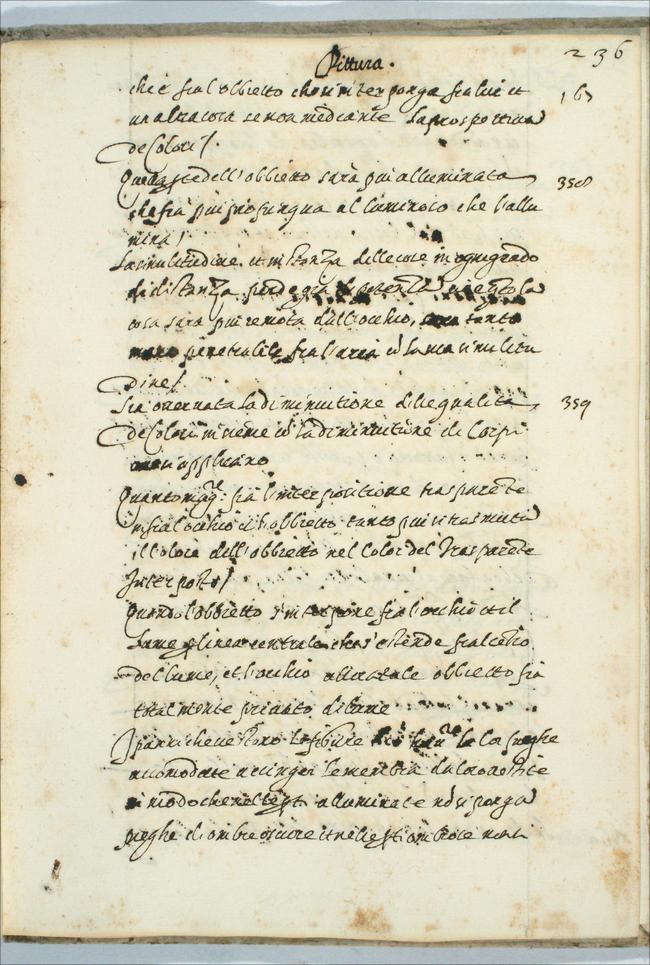 Pittura.
236
che è fra l'obbietto che si interponga fra lui et
167
un altra cosa senon mediante la prospettiva
de Colori /.
Quella pte dell'obbietto sarà piu alluminata
358
che fia piu propinqua al luminoso che l'allu
mina /
La similitudine et sustanza delle cose in ogni grado
di distanza perde gradi di potenza, quanto la
cosa sara piu remota dall'occhio, sara tanto
meno penetrabile fra l'aria cō la sua similitu
dine /.
Sia overnata la diminuitione delle qualità
359
de Colori insieme cō la diminuitione de Corpi
ove si applicano
Quanto magre fia l'interpositione trasparēte
infra l'occhio e l'obbietto tanto piu si trasmuta
il colore dell'obbietto nel color del trasparēte
Interposto /
Quando l'obbietto s'interpone fra l'occhio et il
lume p linea centrale che s'estende fra l cētro
del lume, et l'occhio all'hora tale obbietto fia
totalmente privato di lume
I panni che vestono le figure hanre le lor pieghe
accomodate a cinger le membra da loro vestite
in modo che nelle pti alluminate nō si ponga
pieghe d'ombre oscure et nelle pti ombrose non